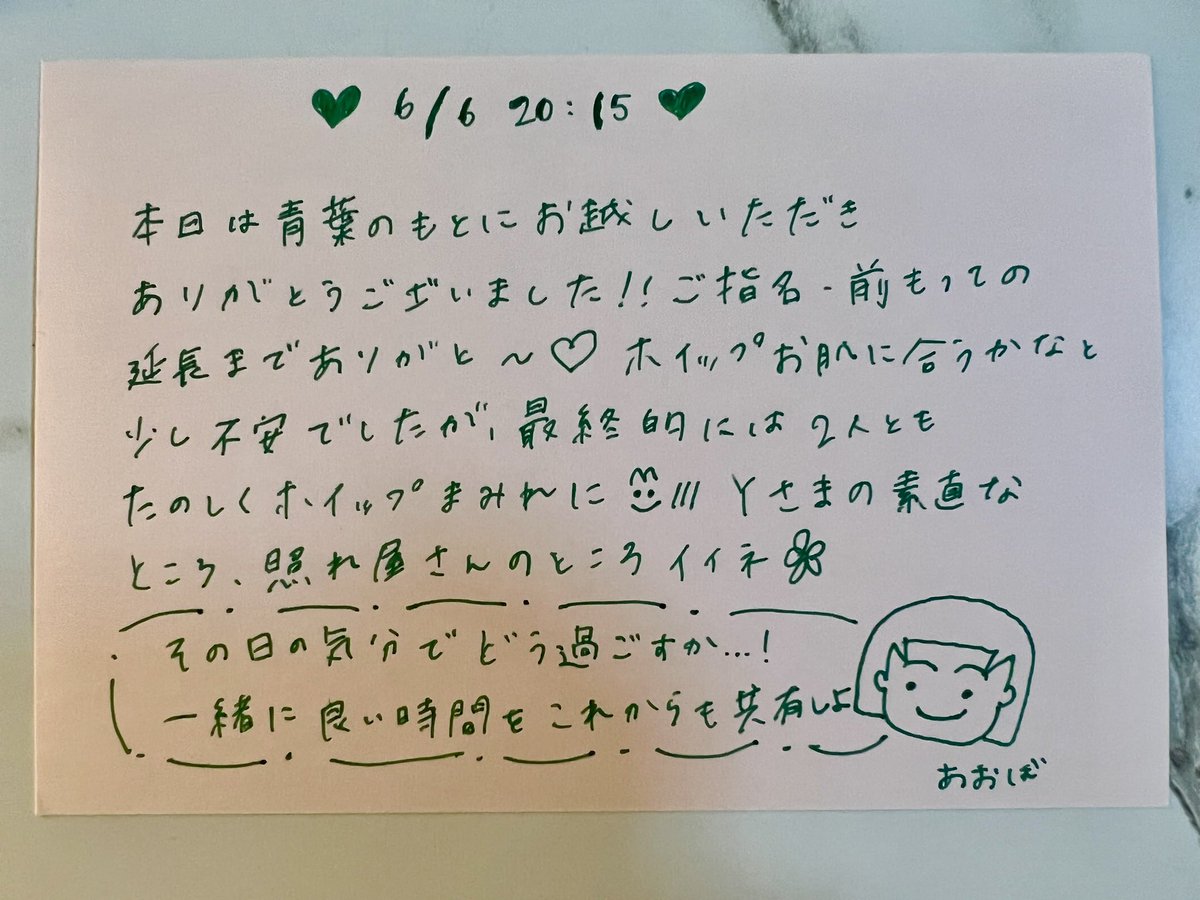 ♥ 6/6 20:15 ♥
本日は青葉のもとにお越しいただき
ありがとうございました!!ご指名・前もっての
延長までありがと〜♡ ホイップお肌に合うかなと
少し不安でしたが、最終的には2人とも
たのしくホイップまみれに /// Yさまの素直な
ところ、照れ屋さんのところイイネ
その日の気分でどう過ごすか...!
一緒に良い時間をこれからも共有しよ
あおば